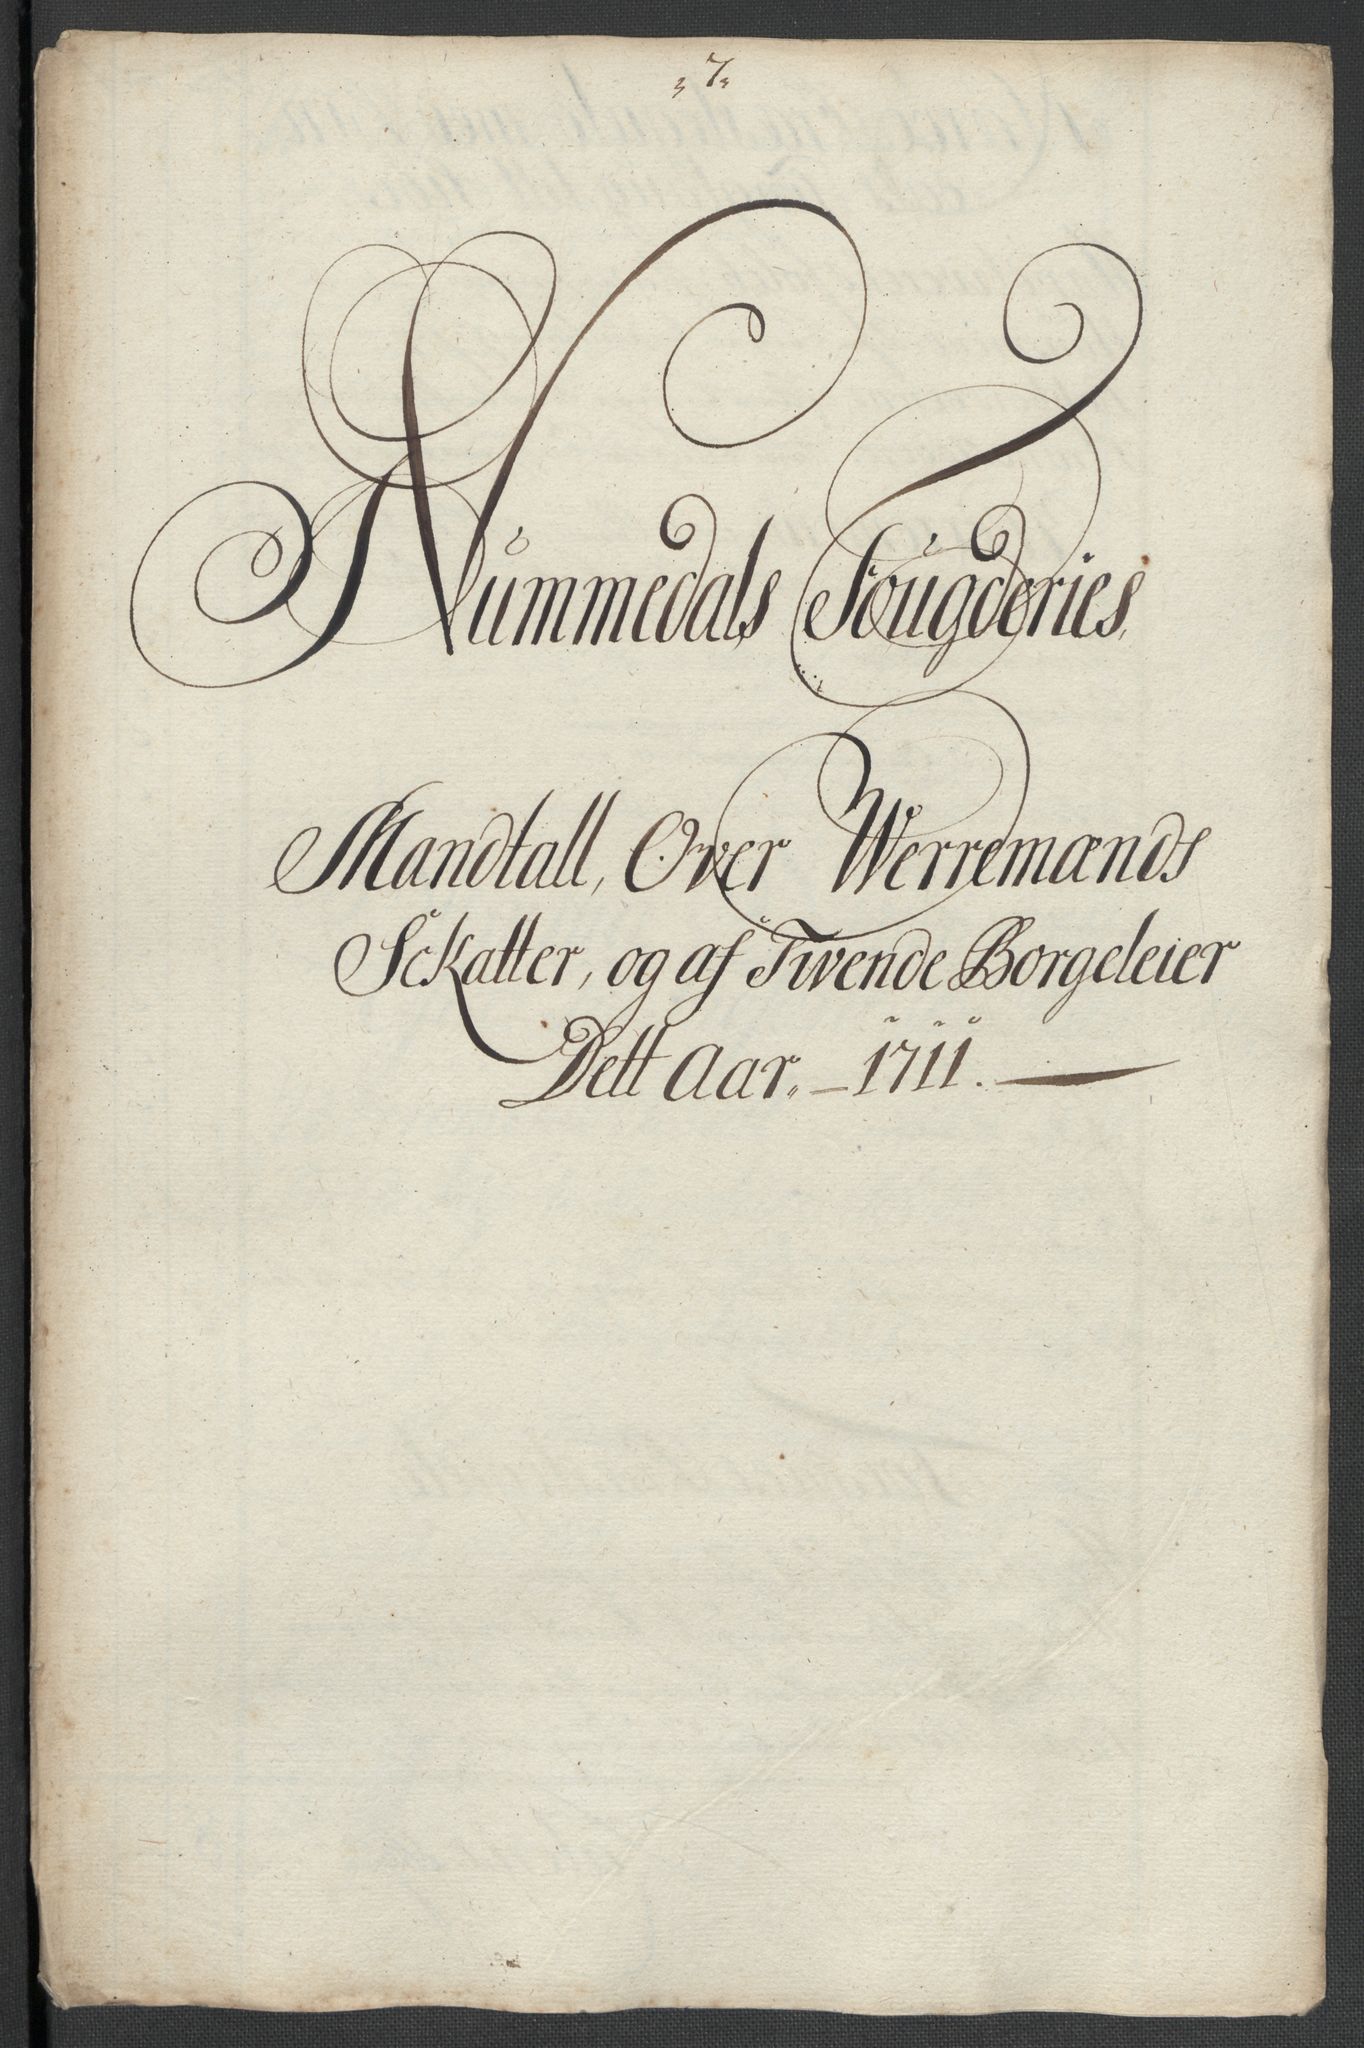 7
Nummedals Fougderies
Mandtall, Over Werremænds
Sckatter, og af Tvende Borgeleier
Dett Aar. – 1711. –